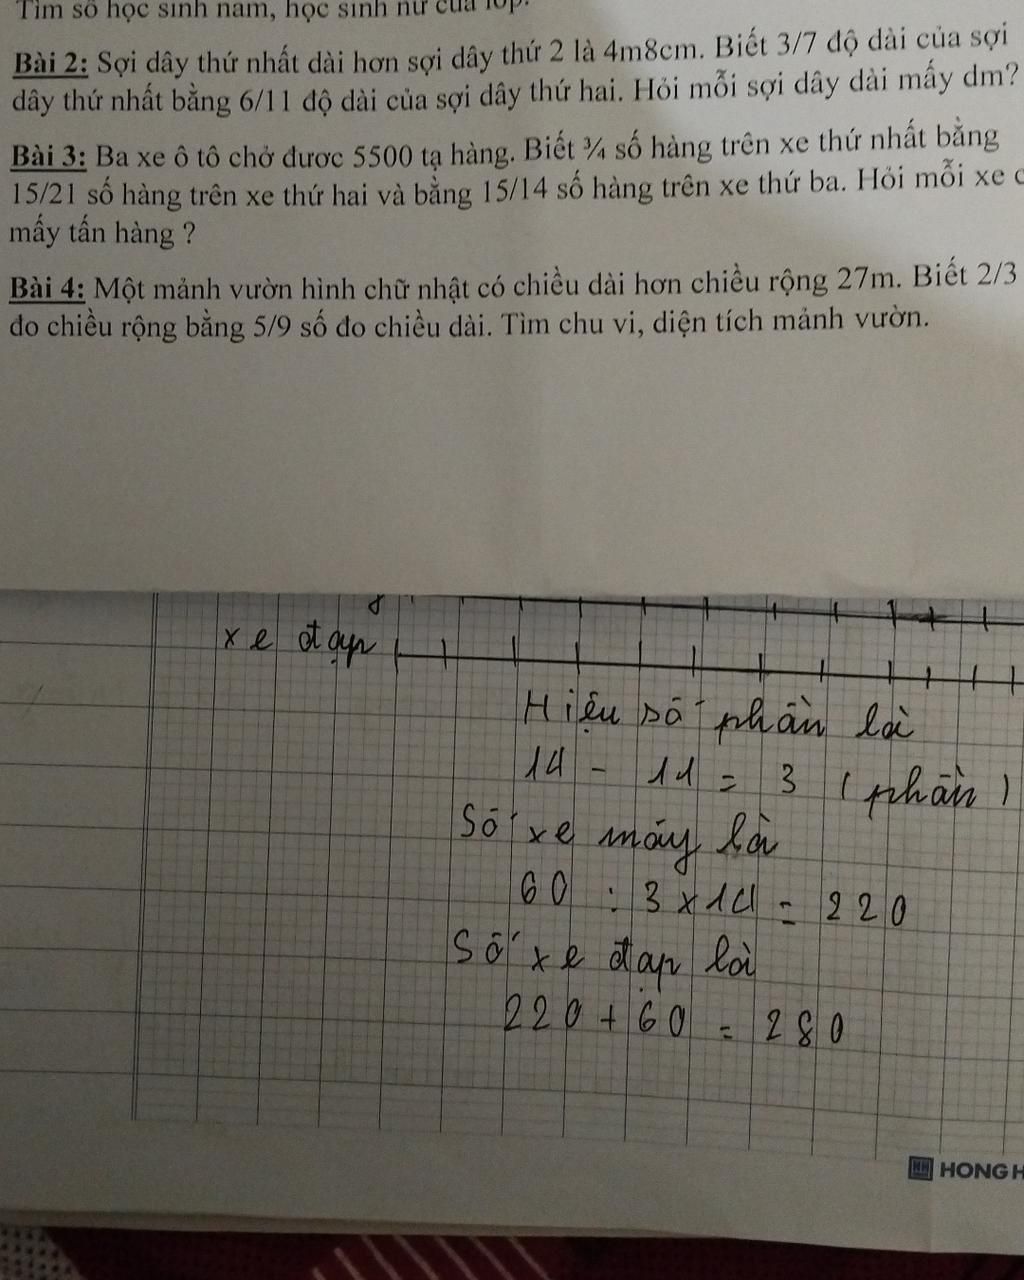 Tìm số học sinh nam, học sinh nữ của lớp.
Bài 2: Sợi dây thứ nhất dài hơn sợi dây thứ 2 là 4m8cm. Biết 3/7 độ dài của sợi
dây thứ nhất bằng 6/11 độ dài của sợi dây thứ hai. Hỏi mỗi sợi dây dài mấy dm?
Bài 3: Ba xe ô tô chở được 5500 tạ hàng. Biết ¾ số hàng trên xe thứ nhất bằng
15/21 số hàng trên xe thứ hai và bằng 15/14 số hàng trên xe thứ ba. Hỏi mỗi xe c
mấy tấn hàng ?
Bài 4: Một mảnh vườn hình chữ nhật có chiều dài hơn chiều rộng 27m. Biết 2/3
đo chiều rộng bằng 5/9 số đo chiều dài. Tìm chu vi, diện tích mảnh vườn.
xe đạp
Hiệu số phần là
14 - 11 = 3 (phần)
Số xe máy là
60 : 3 x 11 = 220
Số xe đạp là
220 + 60 = 280
HONG H